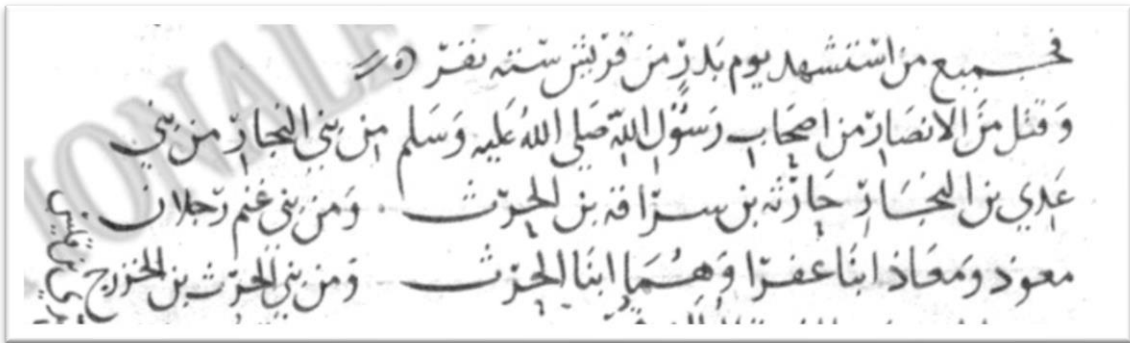 فجميع من استشهد يوم بدر من قريش ستة نفر
وقتل من الانصار من اصحاب رسول الله صلى الله عليه وسلم من بني النجار من بني
عدي بن النجار حارثه بن سراقه بن الحرث ومن بني غنم رجلان
معوذ ومعاذ ابنا عفرا وهما ابنا الحرث ومن بني الحرث بن الخزرج